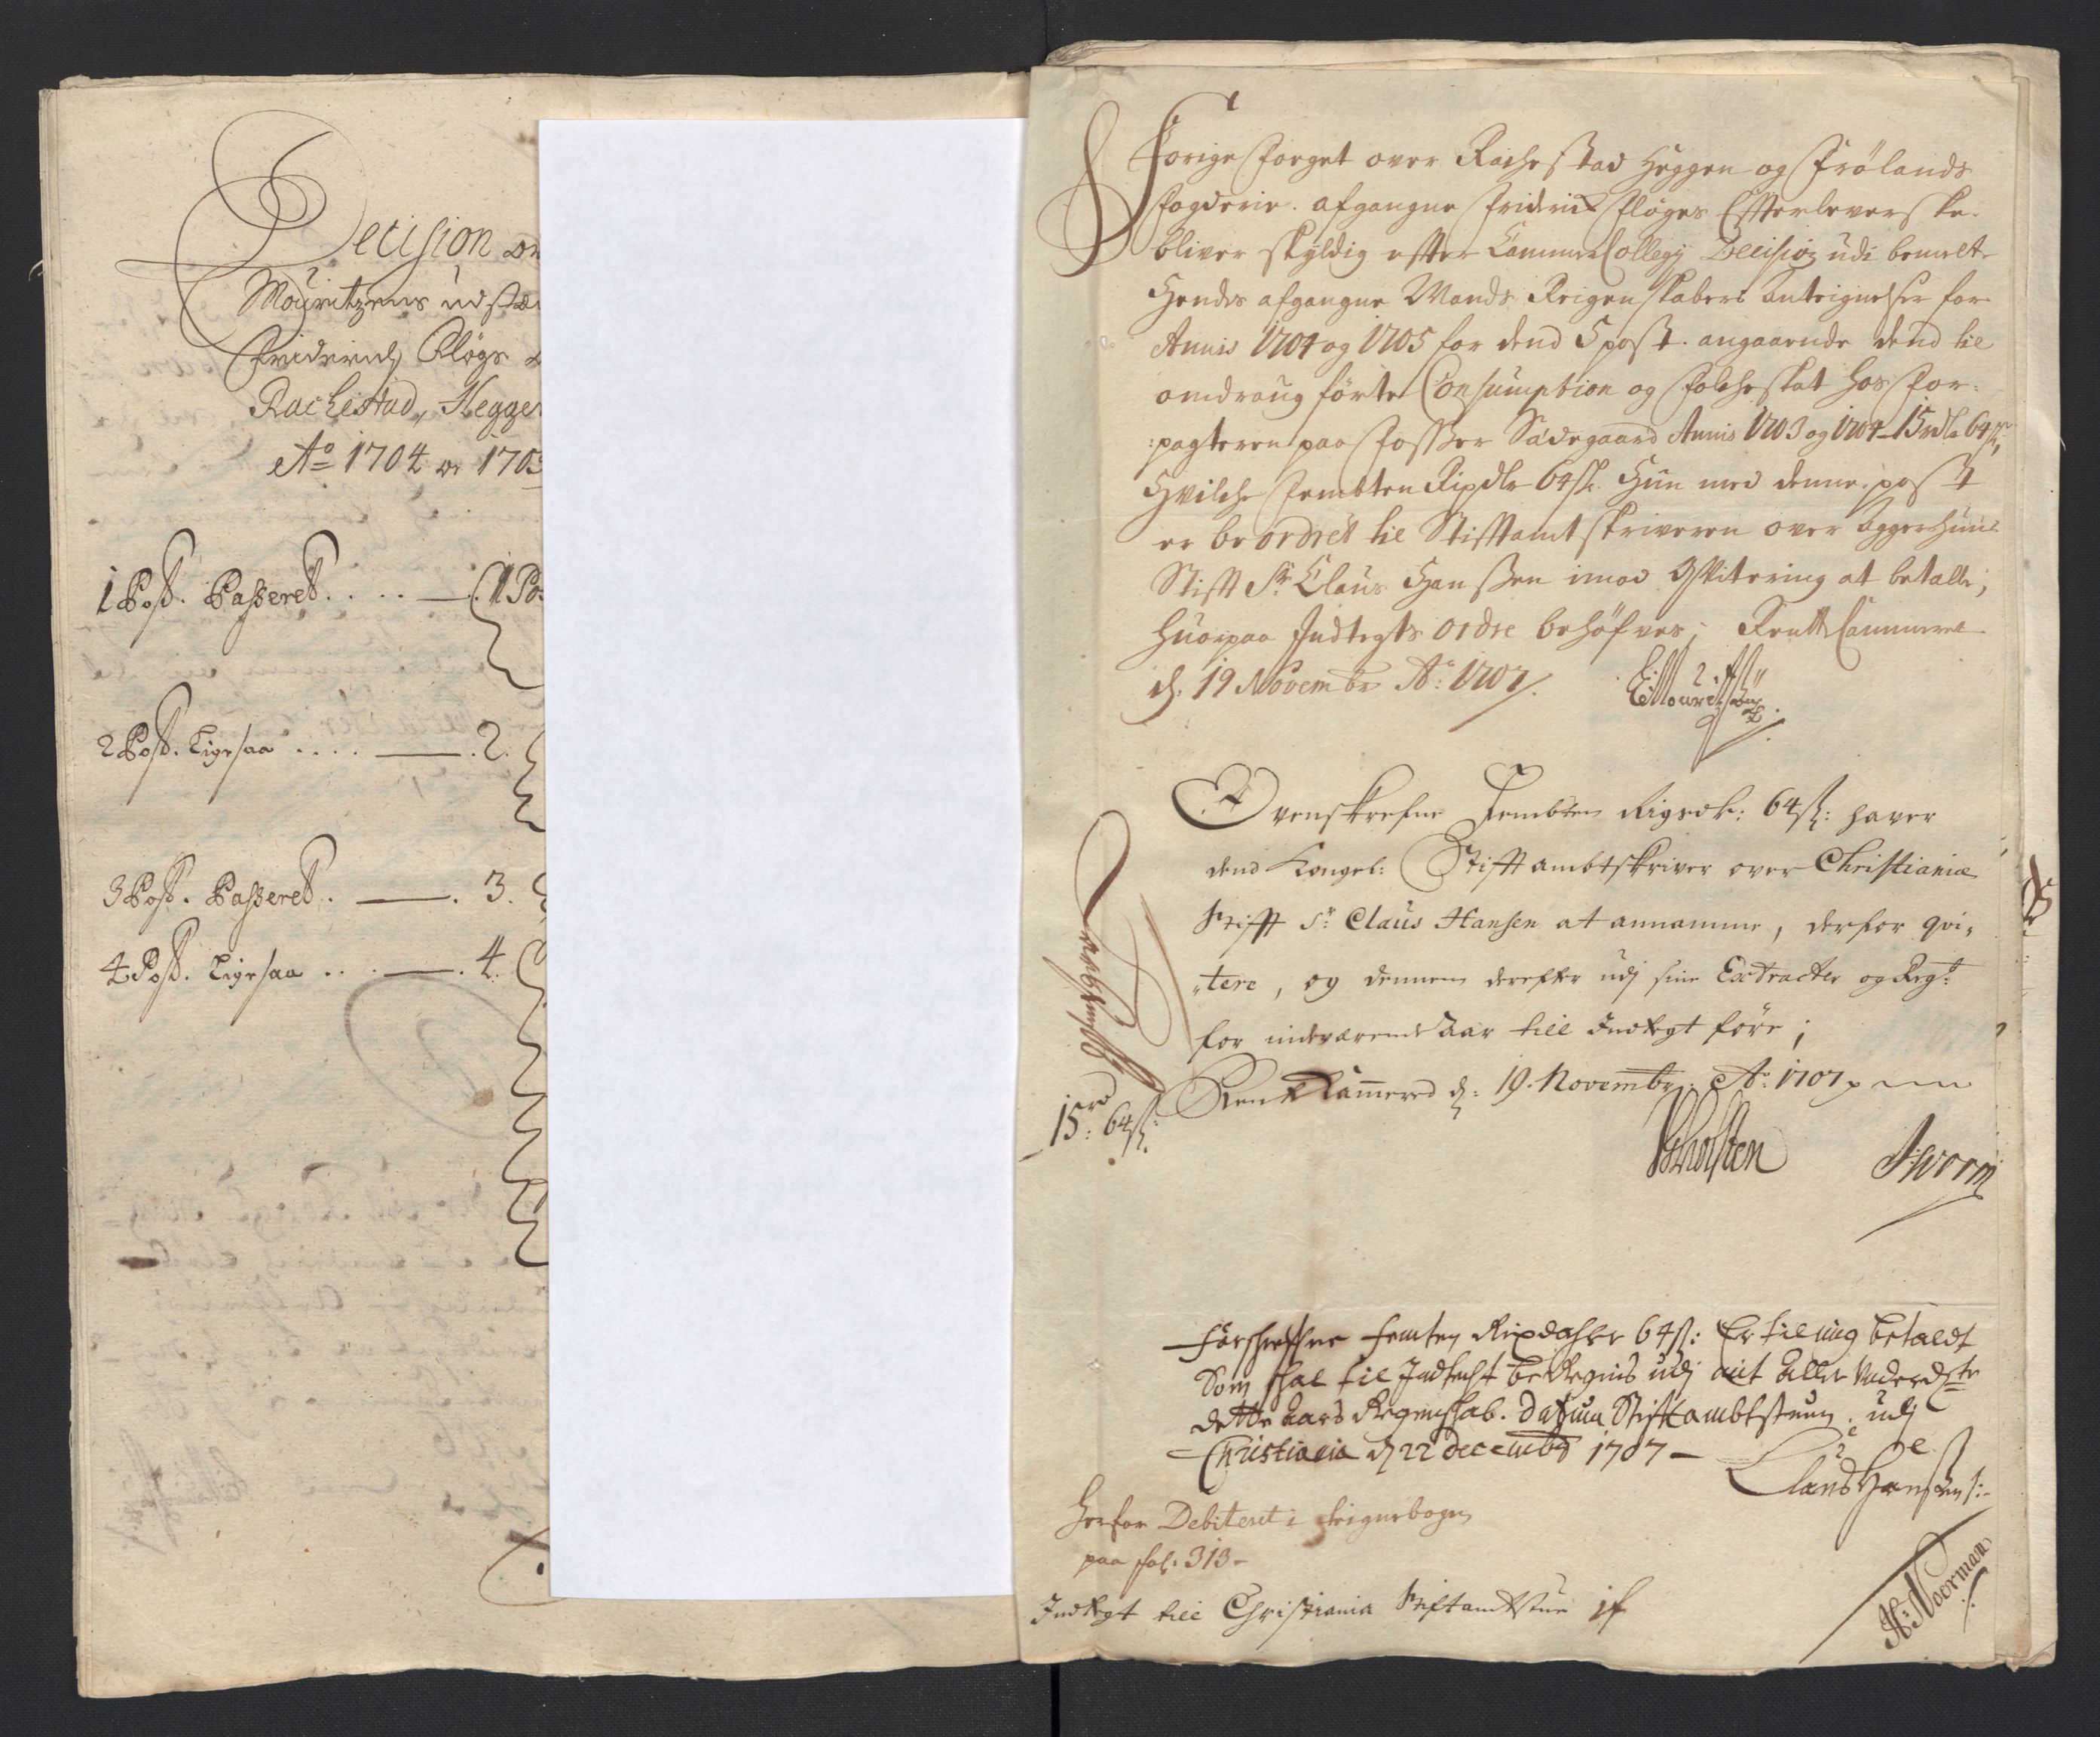 Decision
Mouritzens udstæ
Friderich Pløgs
Rachestad, Hegge
Aō 1704 oc 1705
1 Post. Passeret . . . . — 1 Po
2 Post. Ligesaa . . . . — . 2.
3 Post. Passeret . — . 3.
4 Post. Ligesaa . . . — . 4.
Forige Foeget over Rachestad Heggen og Frølands
Fogderie. afgangne Friderich Pløges Efterleverske
bliver skyldig efter Cammer Collegij Decision udi bemelte
Hendes afgangne Mands Reigenskabers Anteignelser for
Annis 1704 og 1705 for dend 5 post. angaaende dend til
omdraug førte Consumption og Folcheskat hos For-
:pagteren paa Fosser Sædegaard Annis 1703 og 1704 - 15 rdlr 64 s
Hvilche Fembten Rixdlr 64 s. Hun med denne post
er beordret til Stifftamtskriveren over Aggershuus
Stifft Sr Claus Hanssen imod Qvitering at betalle,
huorpaa Indtegts ordre behøfves; Rentte Cammeret
d. 19 Novembr Ao: 1707.
Ovenskrefne Fembten Rigsdlr: 64 s: haver
dend Kongel: Stifft ambtskriver over Christianiæ
Stifft Sr: Claus Hansen at annamme, derfor qvi-
-tere, og dennem derefter udj sine Extracter og Regsk:
for indeværende Aar till Indtegt føre;
Rente Kammered d: 19. Novembr: Ao: 1707
15 rd: 64 s:
Holsten
J Worm
Forschrefne femten Rixdahler 64 s: Er til mig betaldt
Som skal til Indtecht beregnis udj mit aller underdste
dette Aars Regenschab. Datum Stiftambtstuen. udj
Christiania d 22 decembr 1707 —
Claus Hanssen
Herfor Debiteret i Reignebogen
paa fol: 313 -
Indtegt till Christiania Stiftamtstue
H: Noorman